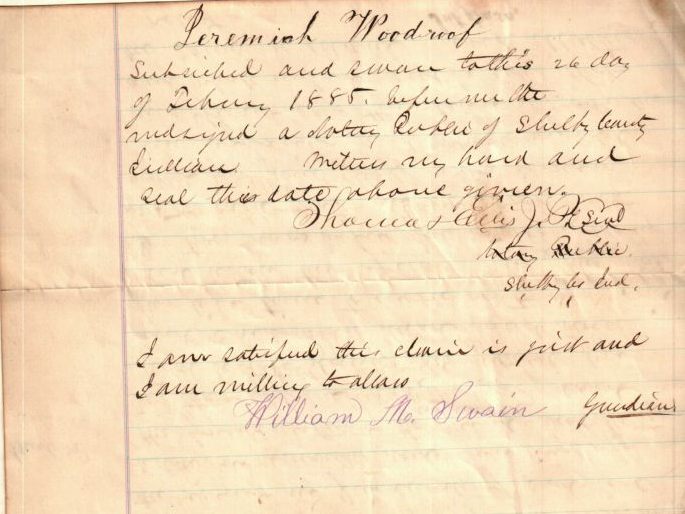 Jeremiah Woodroof
Subscribed and sworn to this 26 day
of Febuary 1885. before me the
undsigned a Notary Public of Shelby County
Indiana Witness my hand and
seal this date above given.
Thomas Ellis J. P. Seal
Notary Public
Shelby Co Ind.
I am satisfied this claim is just and
I am willing to allow
William M. Swain Guardian